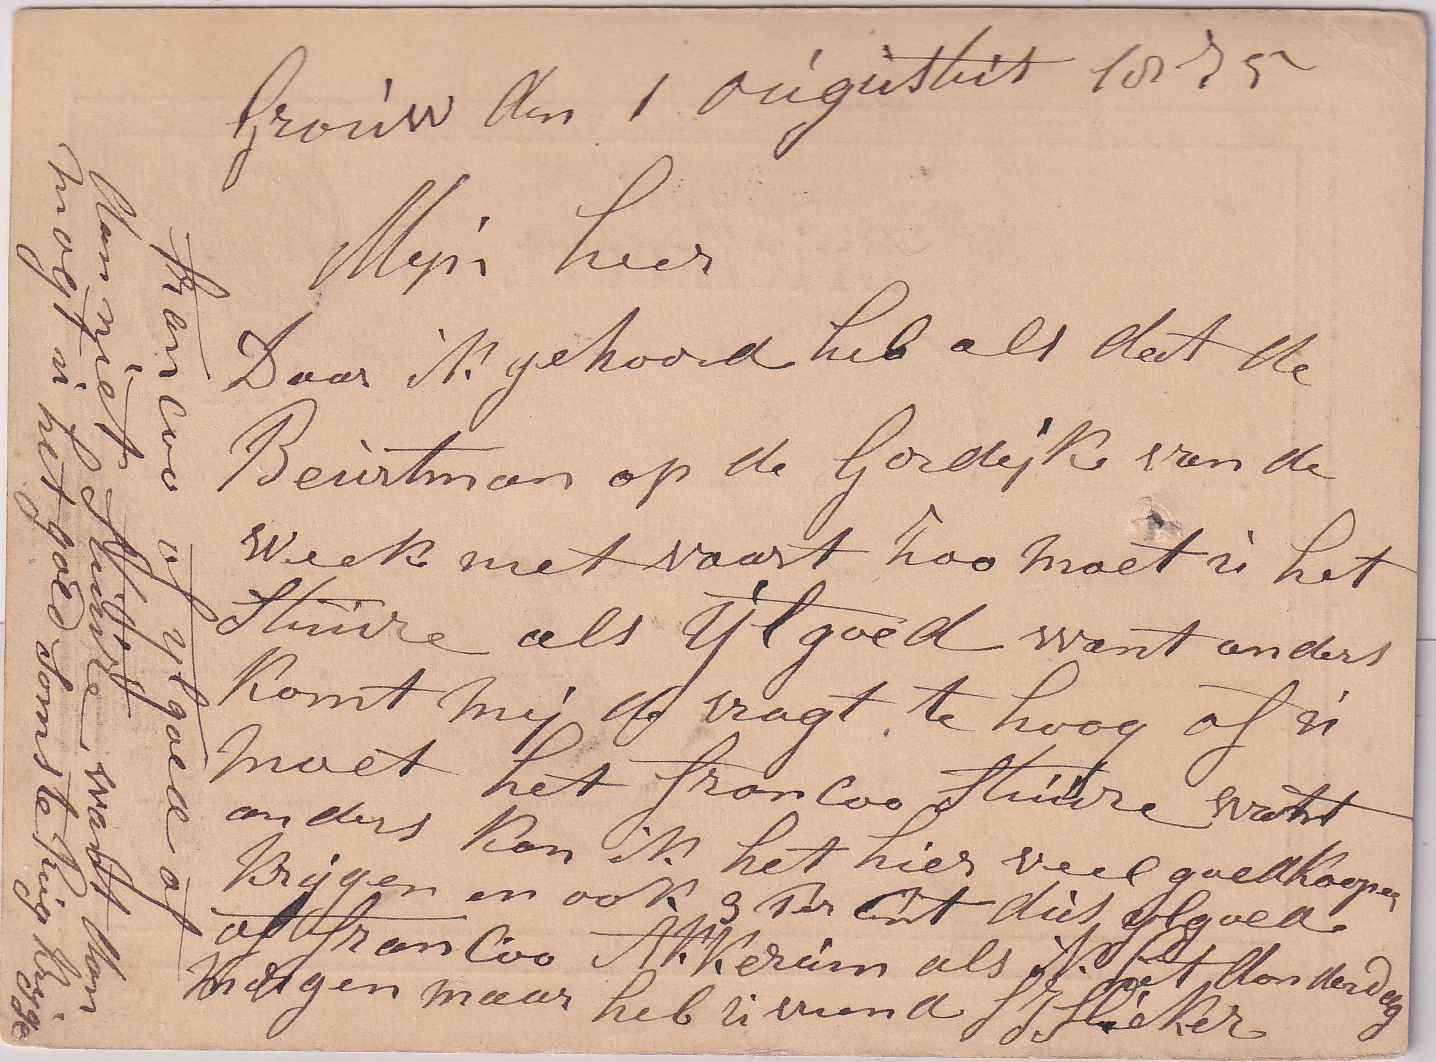 Grouw den 1 Augustus 1875
Mijn heer
Daar ik gehoord heb als dat de
Beurtman op de Gordijke van de
week niet vaart zoo moet u het
stuure als ijlgoed want anders
komt mij de vragt te hoog of u
moet het francoo stuure want
anders kan ik het hier veel goedkooper
krijgen en ook 3 per cent dus ylgoed
of francoo Akkerum als ik het donderdag
morgen maar heb u vriend
francoo of ylgoed of
dan niet stuure want dan
mogt u het goed soms terug krijge